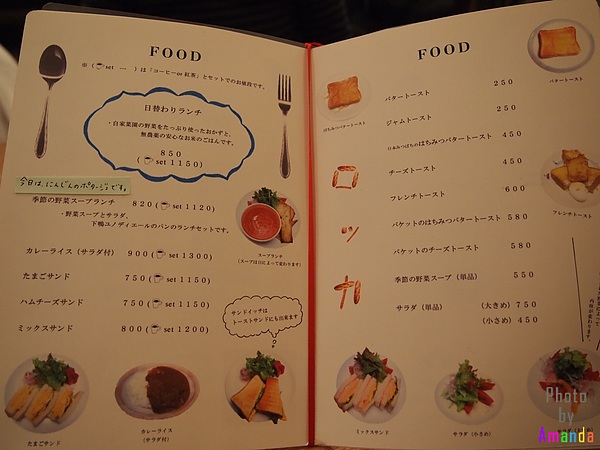 FOOD
※(set ... )は「コーヒーor 紅茶」とセットでのお値段です。
日替わりランチ
・自家菜園の野菜をたっぷり使ったおかずと、
無農薬の安心なお米のごはんです。
850
(set 1150)
今日は、にんじんのポタージュです。
季節の野菜スープランチ 820(set 1120)
・野菜スープとサラダ、
下鴨ユノディエールのパンのランチセットです。
スープランチ
(スープは日によって変わります)
カレーライス(サラダ付) 900(set 1300)
たまごサンド 750(set 1150)
ハムチーズサンド 750(set 1150)
ミックスサンド 800(set 1200)
サンドイッチは
トーストサンドにも出来ます
?
たまごサンド
カレーライス
(サラダ付)
FOOD
バタートースト 250
ジャムトースト 250
日本みつばちのはちみつバタートースト 450
チーズトースト 450
フレンチトースト 600
バケットのはちみつバタートースト 580
バケットのチーズトースト 580
季節の野菜スープ(単品) 550
サラダ(単品) (大きめ) 750
(小さめ) 450
はちみつバタートースト
バタートースト
フレンチトースト
ミックスサンド
サラダ(小さめ)
Photo
by
Amanda